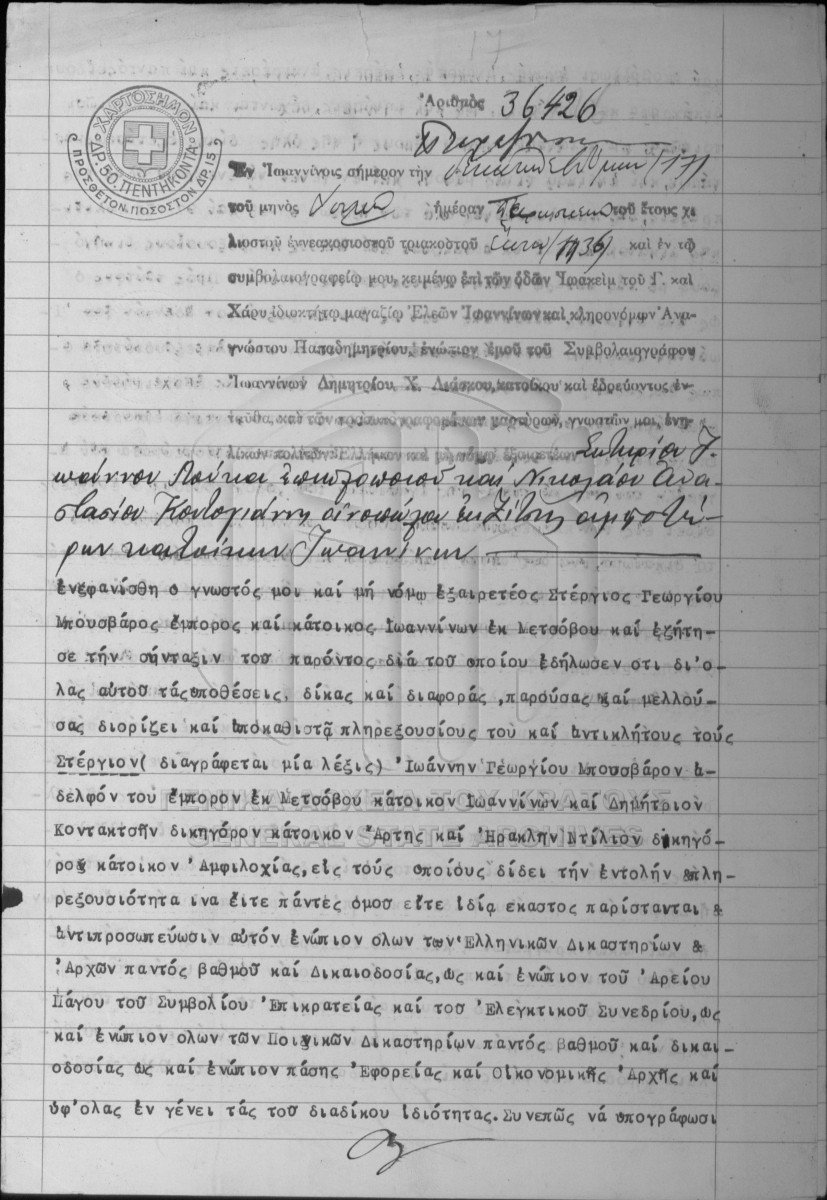 ΧΑΡΤΟΣΗΜΟΝ
ΔΡ. 50. ΠΕΝΤΗΚΟΝΤΑ
ΠΡΟΣΘΕΤΟΝ. ΠΟΣΟΣΤΟΝ. ΔΡ. 15.
Ἀριθμὸς 36426
Ἐν Ἰωαννίνοις σήμερον τὴν δεκάτην ἑβδόμην (17)
τοῦ μηνὸς ἡμέραν Παρασκευὴν τοῦ ἔτους χι
λιοστοῦ ἐννεακοσιοστοῦ τριακοστοῦ ἕκτου (1936) καὶ ἐν τῷ
συμβολαιογραφείῳ μου, κειμένῳ ἐπὶ τῶν ὁδῶν Ἰωακεὶμ τοῦ Γ. καὶ
Χάρυ ἰδιοκτήτῳ μαγαζίῳ Ἐλεῶν Ἰωαννίνων καὶ κληρονόμων Ἀνα-
γνώστου Παπαδημητρίου, ἐνώπιον ἐμοῦ τοῦ Συμβολαιογράφου
Ἰωαννίνων Δημητρίου Χ. Λιάσκου, κατοίκου καὶ ἑδρεύοντος ἐν-
ταῦθα, καὶ τῶν προσυπογραφομένων μαρτύρων, γνωστῶν μοι, ἐνη-
λίκων πολιτῶν Ἑλλήνων καὶ μὴ νόμῳ ἐξαιρετέων Σωτηρίου Ἰ-
ωάννου Λούκα καὶ Νικολάου Ἀνα-
στασίου Κοντογιάννη οἰνοπώλου ἐκ Ζίτσης ἀμφοτέ-
ρων κατοίκων Ἰωαννίνων
ἐνεφανίσθη ο γνωστός μοι καί μή νόμῳ ἐξαιρετέος Στέργιος Γεωργίου
Μπουσβάρος ἐμπορος καί κάτοικος Ιωαννίνων ἐκ Μετσόβου καί ἐζήτη-
σε τήν σύνταξιν τοσ παρόντος διά τοσ οποίου ἐδήλωσεν οτι δι'ο-
λας αὐτοσ τάς υποθέσεις, δίκας καί διαφοράς, παρούσας καί μελλού-
σας διορίζει καί ἀποκαθιστᾷ πληρεξουσίους τοσ καί ἀντικλήτους τούς
Στέργιον( διαγράφεται μία λέξις) Ἰωάννην Γεωργίου Μπουσβάρον ἀ-
δελφόν του ἐμπορον ἐκ Μετσόβου κάτοικον Ιωαννίνων καί Δημήτριον
Κοντακτσῆν δικηγόρον κάτοικον Ἄρτης καί Ἡρακλῆν Ντίλιον δικηγό-
ρον κάτοικον Ἀμφιλοχίας, εἰς τούς οποίους δίδει τήν ἐντολήν &πλη-
ρεξουσιότητα ινα εἴτε πάντες ὁμοσ εἴτε ἰδίᾳ εκαστος παρίστανται &
ἀντιπροσωπεύωσιν αὐτόν ἐνώπιον ολων των Ἑλληνικῶν Δικαστηρίων &
Ἀρχῶν παντός βαθμοῦ καί Δικαιοδοσίας, ως καί ἐνώπιον τοῦ Ἀρείου
Πάγου τοῦ Συμβολίου Ἐπικρατείας καί τοσ Ἐλεγκτικοῦ Συνεδρίου, ως
καί ἐνώπιον ολων τῶν Ποινικῶν Δικαστηρίων παντός βαθμοῦ καί δικαι-
οδοσίας ως καί ἐνώπιον πάσης Ἐφορείας καί Οἰκονομικῆς Ἀρχῆς καί
ὑφ'ολας ἐν γένει τάς τοσ διαδίκου ἰδιότητας. Συνεπῶς νά υπογράφωσι
ΓΕΝΙΚΑ ΑΡΧΕΙΑ ΤΟΥ ΚΡΑΤΟΥΣ
GENERAL STATE ARCHIVES